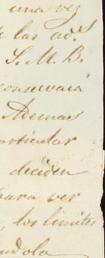 una vez
las ad
S. M. B.
conservara
Ademas
particular
deciden
para ver
los limites
andola